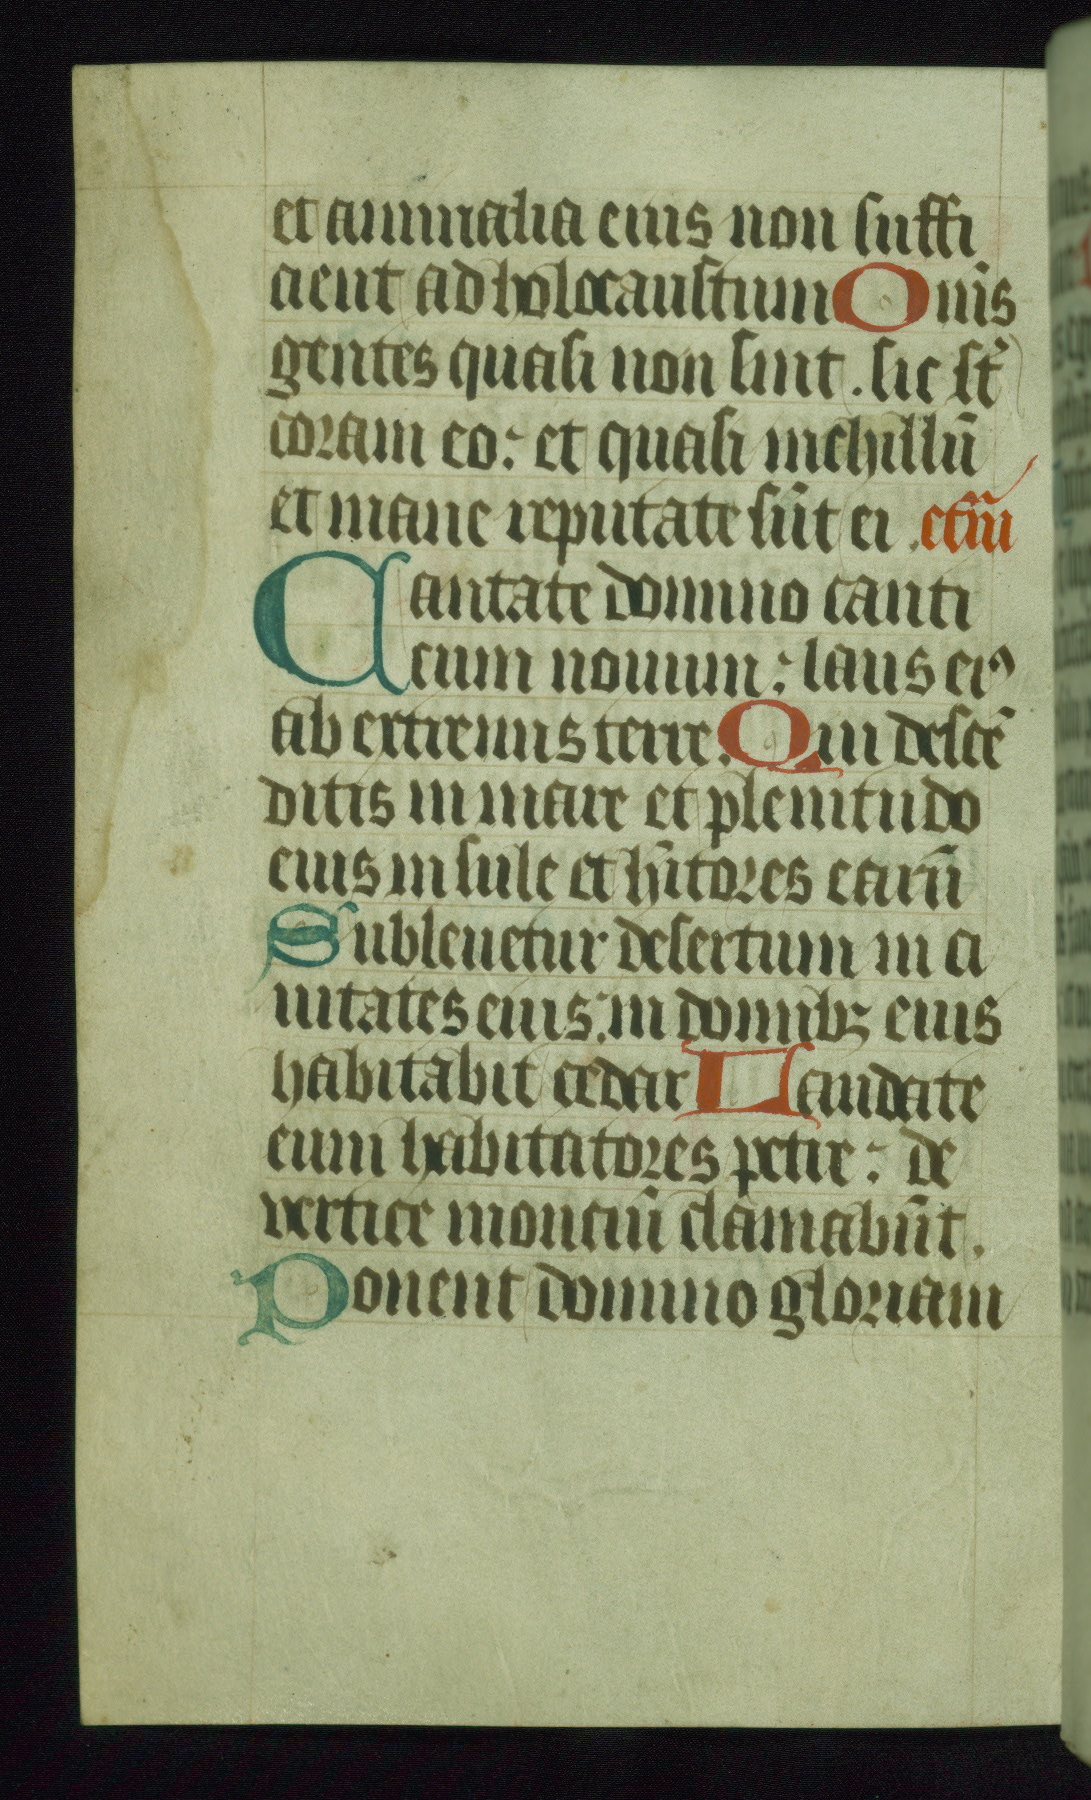 et animalia eius non suffi
cient ad holocaustum Om̄s
gentes quasi non sint . sic st̄
coram eo : et quasi nichillū
et inane reputate sūt ei . ctīū
Cantate domino canti
cum nouum : laus eiꝰ
ab extremis terre . Qui descē
ditis in mare et plenitudo
eius insule et hītores earū
Subleuetur desertum in ci
uitates eius : in domibꝫ eius
habitabit cedar Laudate
eum habitatores petre : de
vertice monciū clamabūt .
Ponent domino gloriam